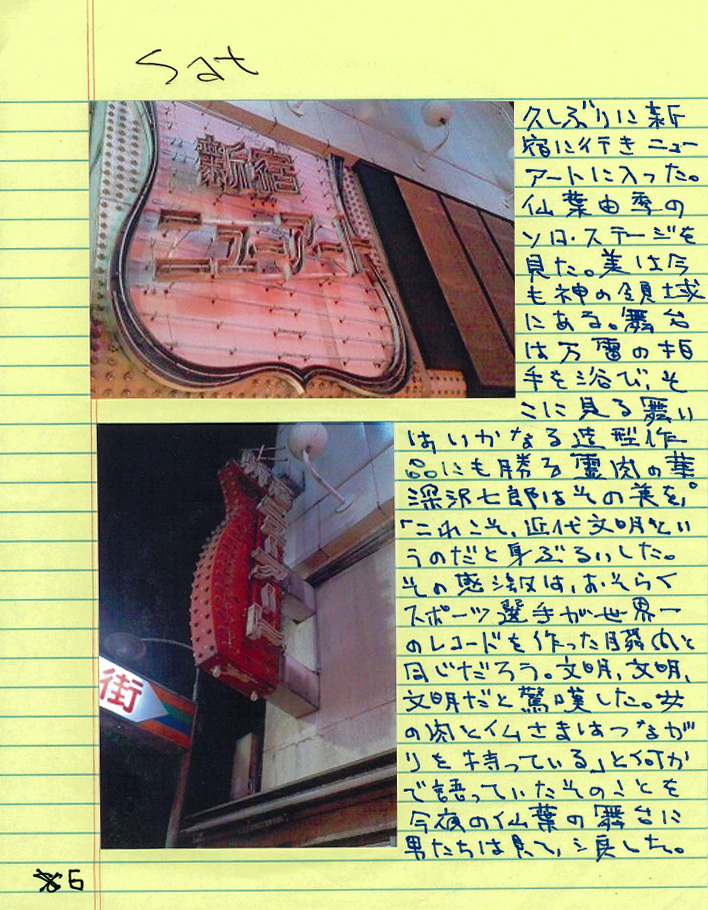 Sat
新宿
ニューアート
街
久しぶりに新
宿に行きニュー
アートに入った。
仙葉由季の
ソロ・ステージを
見た。美は今
も神の領域
にある。舞台
は万雷の拍
手を浴び、そ
こに見る舞い
はいかなる造型作
品にも勝る霊肉の華
深沢七郎はその美を。
「これこそ、近代文明とい
うのだと身ぶるいした。
その感激は、おそらく
スポーツ選手が世界一
のレコードを作った瞬間と
同じだろう。文明、文明、
文明だと驚嘆した。女
の肉と仏さまはつながが
りを持っている」と何か
で語っていたそのことを
今夜の仙葉の舞台に
男たちは見て、涙した。
6